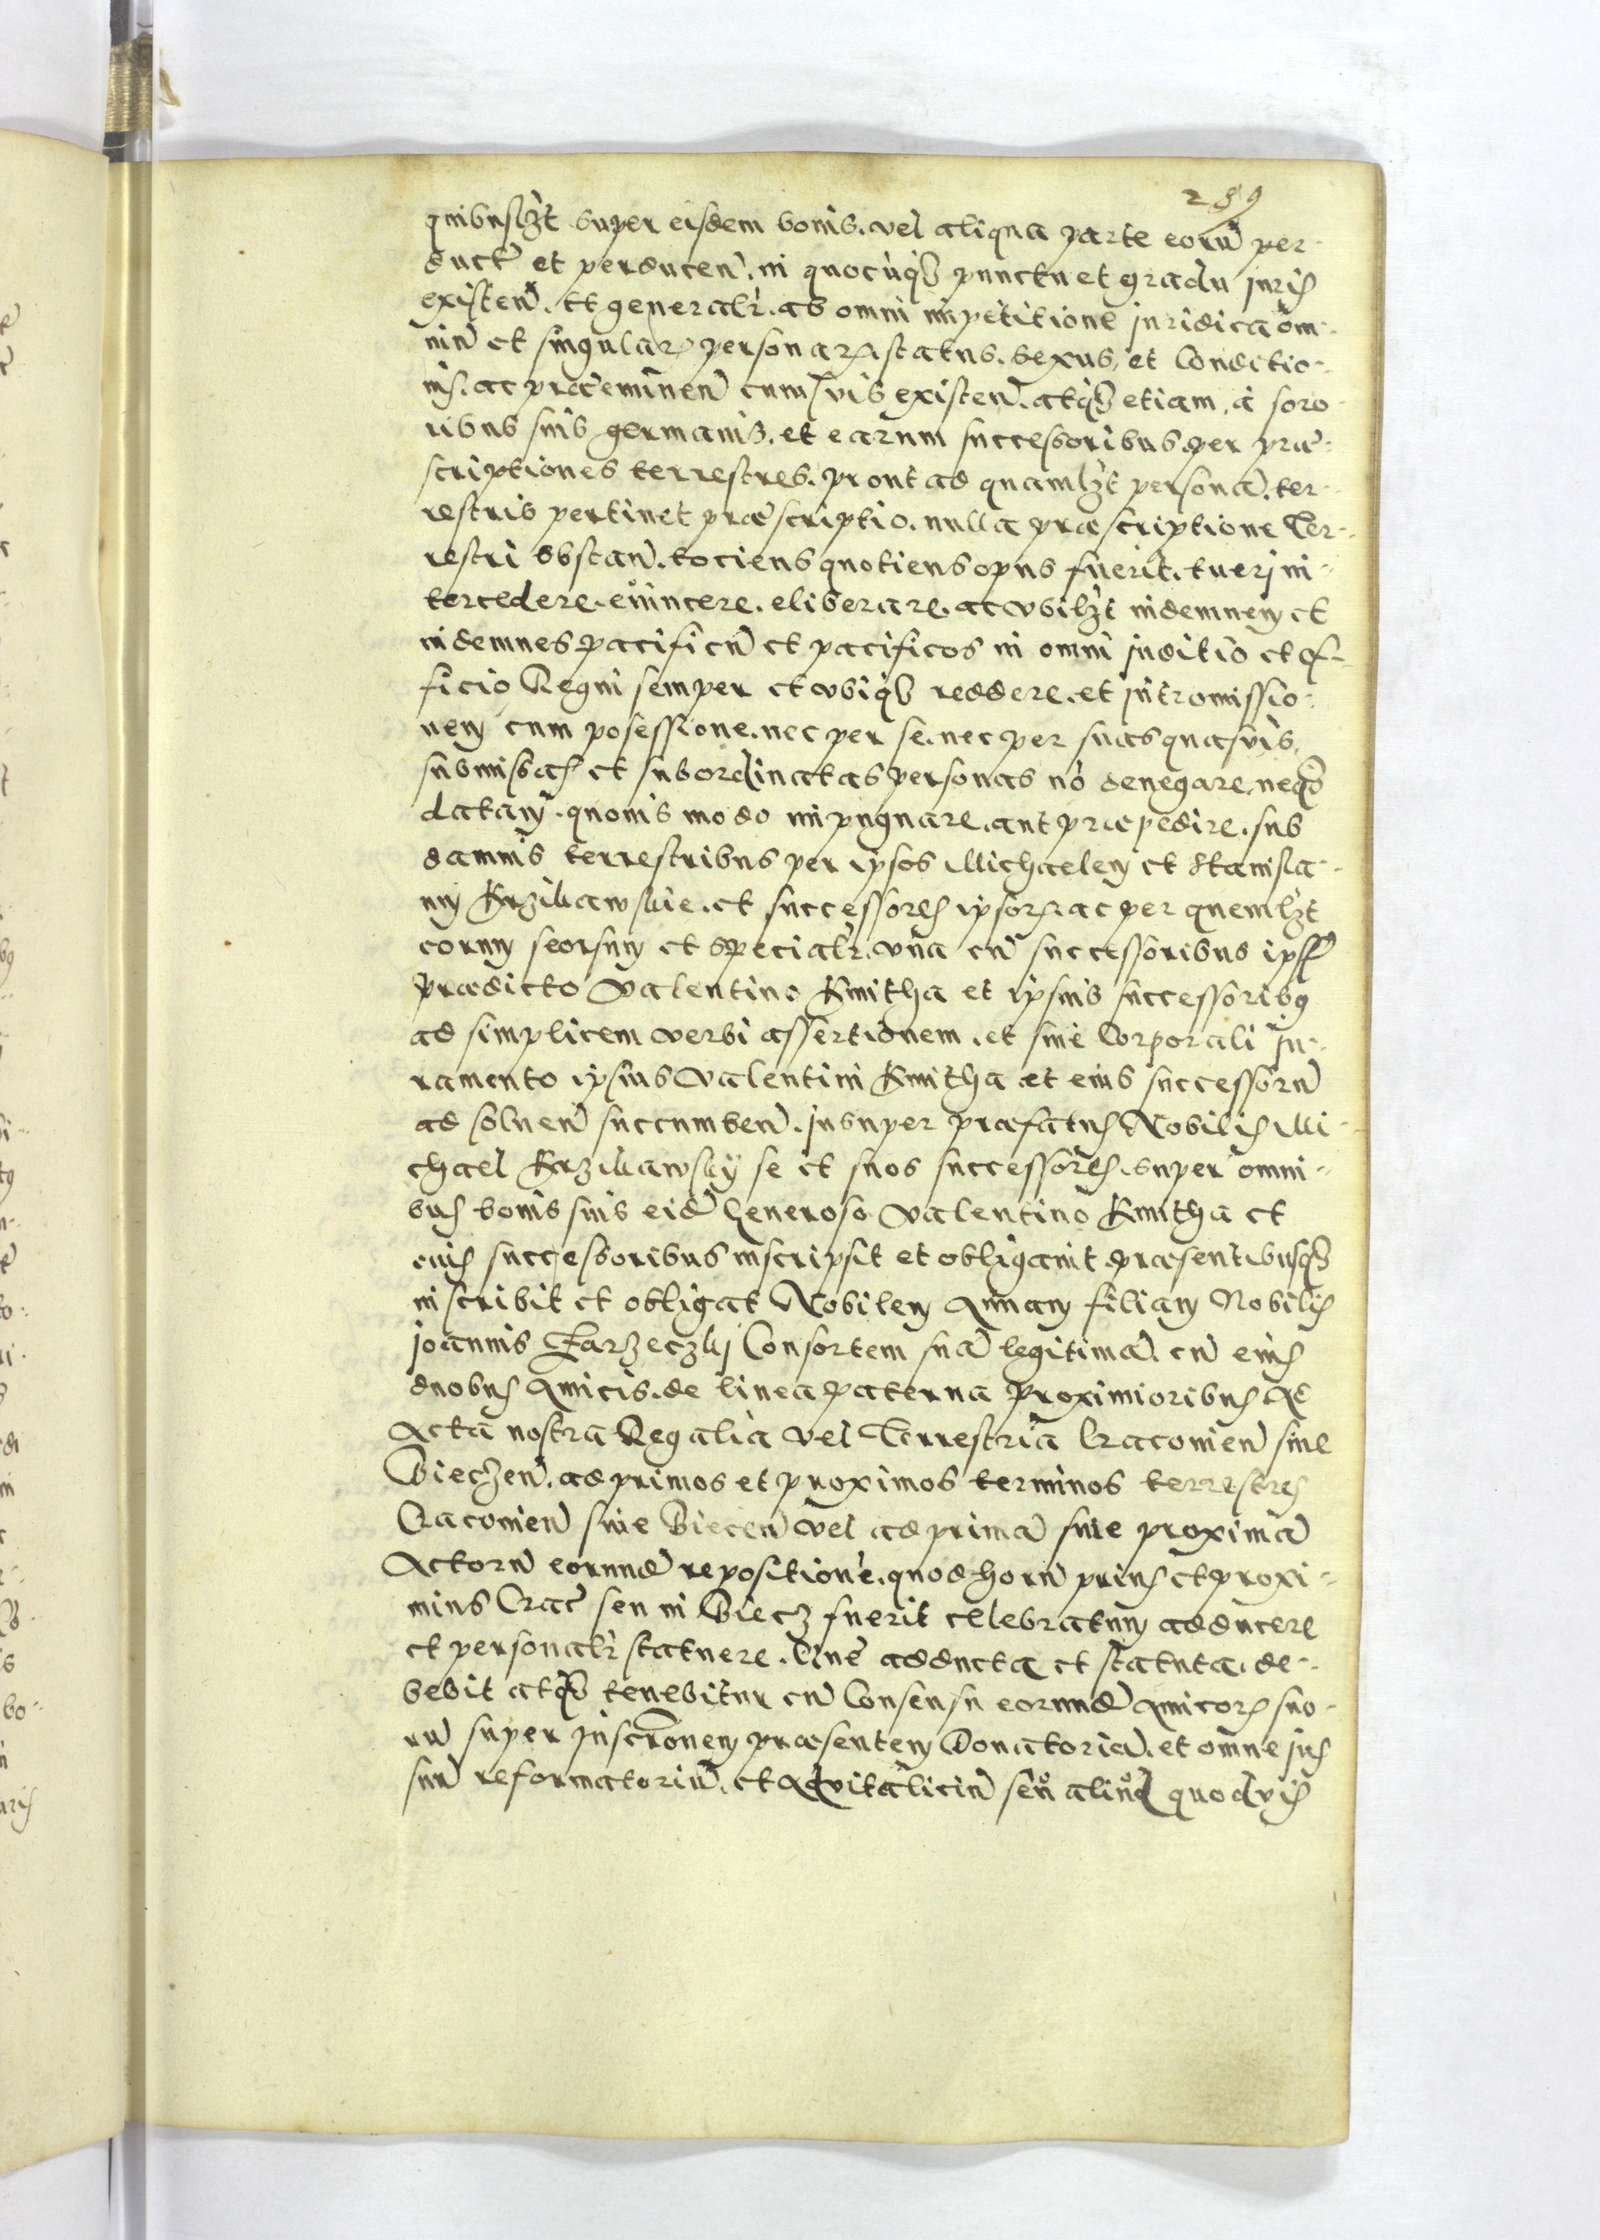 289
quibuslzt super eisdem bonis. vel aliqua parte eorũ per-
duct̃ et perducen̄. in quocũq̄ꝫ punctu et gradu juris
existen̄. et generalr̃. ab omni impetitione juridica om-
niū et singularꝝ personarꝝ status. sexus, et Conditio-
nis. ac præeminen̄ cuiusvis existen̄. atqꝫ etiam, a soro-
ribus suis germanis. et earum successoribus per præ-
scriptiones terrestres. prout ad quamlzt personā. ter-
restris pertinet præscriptio. nulla præscriptione Ter-
restri obstan̄. tociens quotiens opus fuerit. tueri in-
tercedere. evincere. eliberare. ac ubilzt indemnem et
indemnes pacificū et pacificos in omni juditio et of-
ficio Regni semper et ubiqꝫ reddere. et intromissio-
nem cum posessione. nec per se. nec per suas quasvis,
submissas et subordinatas personas nō denegare, neqꝫ
datam. quovis modo impugnare. aut præpedire. sub
damnis terrestribus per ipsos Michaelem et Stanisla-
um et successores ipsorꝝ. ac per quemlzt
eorum seorsum et specialr̃. una cū successoribus ipsꝝ
prædicto Valentino Kmitha et ipsius successoribꝰ
ad simplicem verbi assertionem. et sine Corporali Ju-
ramento ipsius Valentini Kmitha et eius successorū
ad solven̄ succumben̄. insuper præfatus Nobilis Mi-
chael se et suos successores. super omni-
bus bonis suis eidē Generoso Valentino Kmitha et
eius successoribus inscripsit et obligavit præsentibusqꝫ
inscribit et obligat Nobilem Annam filiam Nobilis
joannis Consortem suā legitimā. cū eius
duobus Amicis. de linea paterna proximioribus Ad
Acta nostra Regalia vel Terrestria Cracovien̄ sive
Bieczen̄. ad primos et proximos terminos terrestres
Cracovien̄ sive Biecen̄ vel ad primā sive proximā
Actorū eorundē repositionē. quod horū prius et proxi-
mius Crac̄ seu in Biecz fuerit celebratum adducere
et personalr̃ statuere. Quæ adducta et statuta. de-
bebit atqꝫ tenebitur cū Consensu eorundē Amicorꝝ suo-
rū super Inscr̄onem præsentem Donatoriā. et omne jus
suū reformatoriū. et Advitaliciū seu aliud quodvis